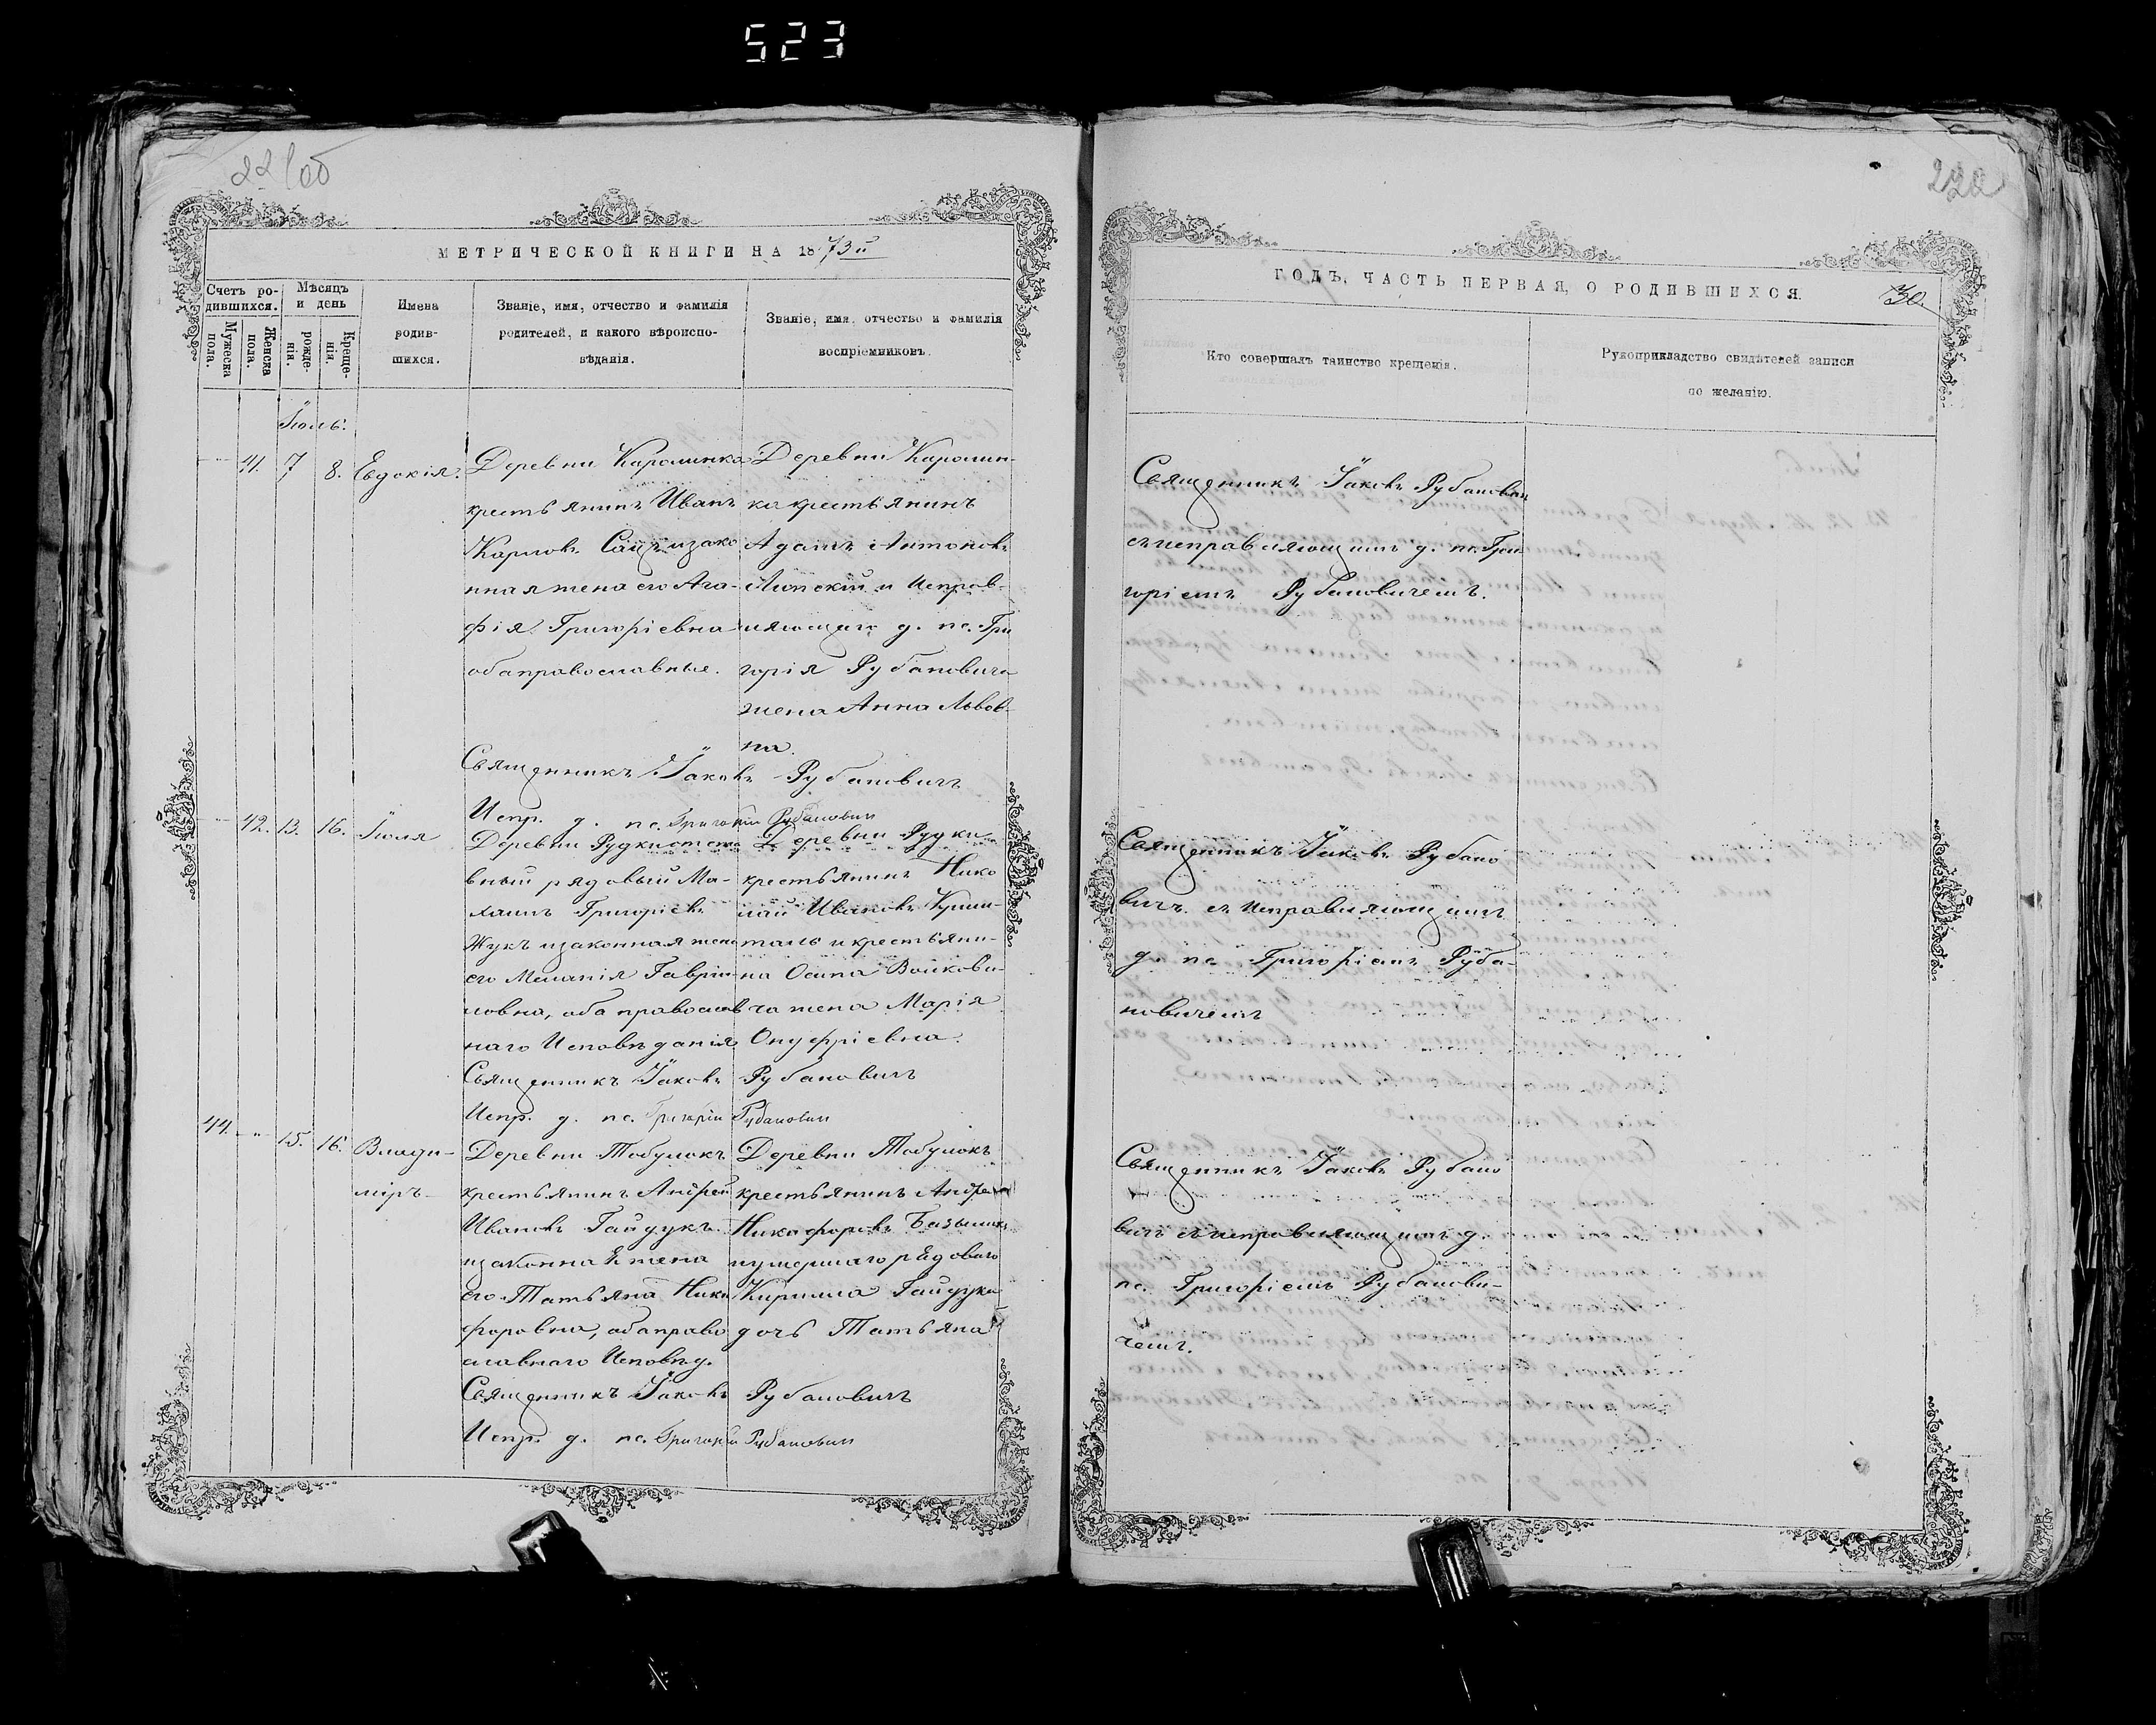 523
221об
МЕТРИЧЕСКОЙ КНИГИ НА 1873й
Счетъ ро-
дившихся.
Мужеска
пола.
Женска
пола.
Мѣсяцъ
и день
рожде-
нія.
Креще-
нія.
Имена
родив-
шихся.
Званіе, имя, отчество и фамилія
родителей, и какого вѣроиспо-
вѣданія.
Званіе, имя, отчество и фамилія
воспріемниковъ.
Іюль.
41. 7 8. Евдокія.
Деревни Каролинка
крестьянинъ Иванъ
Карловъ изако
нная жена его Ага-
фія Григоріевна
оба православные.
Деревни Каролин-
ка крестьянинъ
Адамъ Антоновъ
Липскій и Исправ-
ляющаго д. пс. Гри
горія Рубановича
жена Анна Львов-
на.
Священникъ Іаковъ Рубановичъ
Испр. д. пс. Григорій Рубановичъ
42. 13. 16. Іюлія
Деревни Рудки отста
вный рядовый Ма-
Григоріевъ
Жукъ изаконная жена
его Меланія Гаврии-
ловна, оба православ
наго Исповѣданія
Деревни Рудки
крестьянинъ Нико
лай Ивановъ
и крестьяни-
на Осипа Войкови-
ча жена Марія
Онуфріевна.
Священникъ Іаковъ Рубановичъ
Испр. д. пс. Григорій Рубановичъ
44. " 15. 16. Влади-
міръ
Деревни Табулокъ
крестьянинъ Андрей
Ивановъ Гайдукъ
изаконная жена
его Татьяна Ники
форовна, оба право
славнаго Исповѣд.
Деревни Табулокъ
крестьянинъ Андрей
Никифоровъ
иумершаго рядоваго
Кирилла Гайдука
дочь Татьяна
Священникъ Іаковъ Рубановичъ
Испр. д. пс. Григорій Рубановичъ
222
ГОДЪ, ЧАСТЬ ПЕРВАЯ, О РОДИВШИХСЯ.
30.
Кто совершалъ таинство крещенія.
Рукоприкладство свидѣтелей записи
по желанію.
Священникъ Іаковъ Рубановичъ
съ исправляющимъ д. пс. Гри
горіемъ Рубановичемъ.
Священникъ Іаковъ Рубано
вичъ съ Исправляющимъ
д. пс Григоріемъ Руба-
новичемъ
Священникъ Іаковъ Рубано
вичъ съ исправляющимъ д.
пс. Григоріемъ Рубанови-
чемъ.